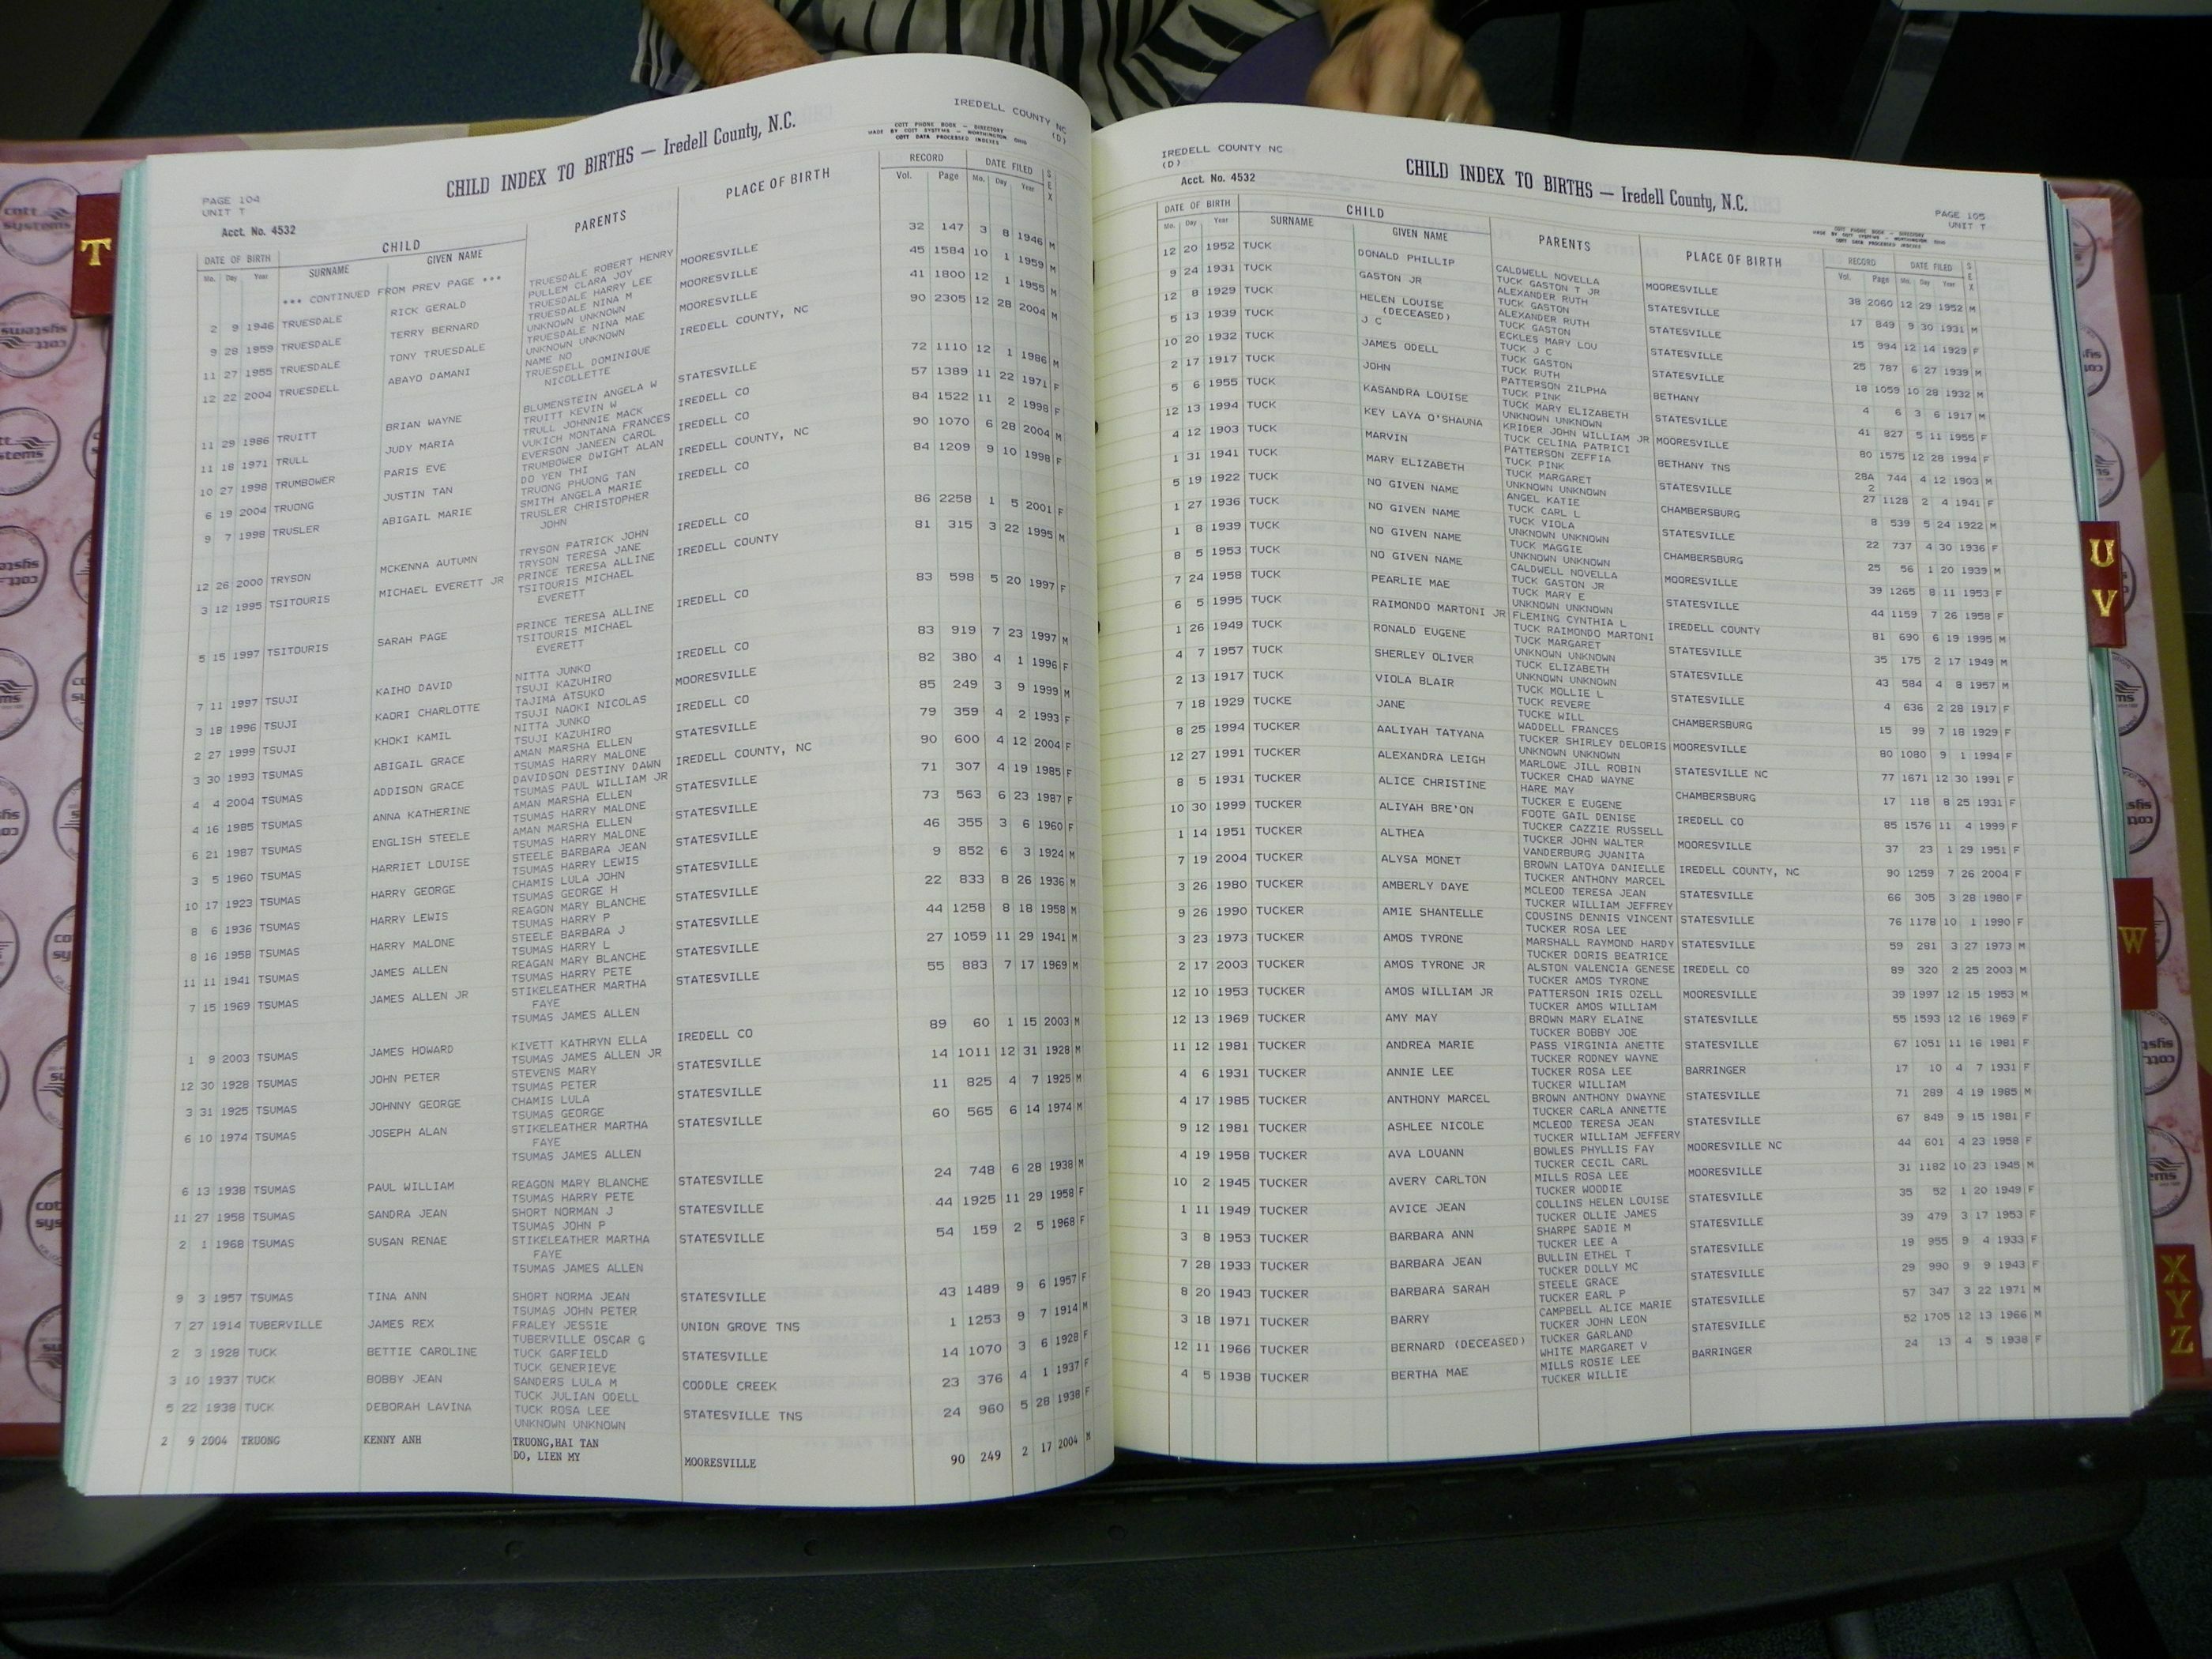 PAGE 104
UNIT T
Acct. No. 4532
CHILD INDEX TO BIRTHS — Iredell County, N.C.
IREDELL COUNTY NC
(D)
COTT PHONE BOOK — DIRECTORY
MADE BY COTT SYSTEMS — WORTHINGTON OHIO
COTT DATA PROCESSED INDEXES
DATE OF BIRTH CHILD PARENTS PLACE OF BIRTH RECORD DATE FILED SEX
Mo. Day Year SURNAME GIVEN NAME Vol. Page Mo. Day Year
*** CONTINUED FROM PREV PAGE *** TRUESDALE ROBERT HENRY
2 9 1946 TRUESDALE RICK GERALD PULLEM CLARA JOY MOORESVILLE 32 147 3 8 1946 M
TRUESDALE HARRY LEE
9 28 1959 TRUESDALE TERRY BERNARD TRUESDALE NINA M MOORESVILLE 45 1584 10 1 1959 M
UNKNOWN UNKNOWN
11 27 1955 TRUESDALE TONY TRUESDALE TRUESDALE NINA MAE MOORESVILLE 41 1800 12 1 1955 M
UNKNOWN UNKNOWN
12 22 2004 TRUESDELL ABAYO DAMANI NAME NO IREDELL COUNTY, NC 90 2305 12 28 2004 M
TRUESDELL DOMINIQUE
NICOLLETTE
11 29 1986 TRUITT BRIAN WAYNE BLUMENSTEIN ANGELA W STATESVILLE 72 1110 12 1 1986 M
TRUITT KEVIN W
11 18 1971 TRULL JUDY MARIA TRULL JOHNNIE MACK IREDELL CO 57 1389 11 22 1971 F
VUKICH MONTANA FRANCES
10 27 1998 TRUMBOWER PARIS EVE EVERSON JANEEN CAROL IREDELL CO 84 1522 11 2 1998 F
TRUMBOWER DWIGHT ALAN
6 19 2004 TRUONG JUSTIN TAN DO YEN THI IREDELL COUNTY, NC 90 1070 6 28 2004 M
TRUONG PHUONG TAN
9 7 1998 TRUSLER ABIGAIL MARIE SMITH ANGELA MARIE IREDELL CO 84 1209 9 10 1998 F
TRUSLER CHRISTOPHER
JOHN
12 26 2000 TRYSON MCKENNA AUTUMN TRYSON PATRICK JOHN IREDELL CO 86 2258 1 5 2001 F
TRYSON TERESA JANE
3 12 1995 TSITOURIS MICHAEL EVERETT JR PRINCE TERESA ALLINE IREDELL COUNTY 81 315 3 22 1995 M
TSITOURIS MICHAEL
EVERETT
5 15 1997 TSITOURIS SARAH PAGE PRINCE TERESA ALLINE IREDELL CO 83 598 5 20 1997 F
TSITOURIS MICHAEL
EVERETT
7 11 1997 TSUJI KAIHO DAVID NITTA JUNKO IREDELL CO 83 919 7 23 1997 M
TSUJI KAZUHIRO
3 18 1996 TSUJI KAORI CHARLOTTE TAJIMA ATSUKO MOORESVILLE 82 380 4 1 1996 F
TSUJI NAOKI NICOLAS
2 27 1999 TSUJI KHOKI KAMIL NITTA JUNKO IREDELL CO 85 249 3 9 1999 M
TSUJI KAZUHIRO
3 30 1993 TSUMAS ABIGAIL GRACE AMAN MARSHA ELLEN STATESVILLE 79 359 4 2 1993 F
TSUMAS HARRY MALONE
4 4 2004 TSUMAS ADDISON GRACE DAVIDSON DESTINY DAWN IREDELL COUNTY, NC 90 600 4 12 2004 F
TSUMAS PAUL WILLIAM JR
4 16 1985 TSUMAS ANNA KATHERINE AMAN MARSHA ELLEN STATESVILLE 71 307 4 19 1985 F
TSUMAS HARRY MALONE
6 21 1987 TSUMAS ENGLISH STEELE AMAN MARSHA ELLEN STATESVILLE 73 563 6 23 1987 F
TSUMAS HARRY MALONE
3 5 1960 TSUMAS HARRIET LOUISE STEELE BARBARA JEAN STATESVILLE 46 355 3 6 1960 F
TSUMAS HARRY LEWIS
10 17 1923 TSUMAS HARRY GEORGE CHAMIS LULA JOHN STATESVILLE 9 852 6 3 1924 M
TSUMAS GEORGE H
8 6 1936 TSUMAS HARRY LEWIS REAGON MARY BLANCHE STATESVILLE 22 833 8 26 1936 M
TSUMAS HARRY P
8 16 1958 TSUMAS HARRY MALONE STEELE BARBARA J STATESVILLE 44 1258 8 18 1958 M
TSUMAS HARRY L
11 11 1941 TSUMAS JAMES ALLEN REAGAN MARY BLANCHE STATESVILLE 27 1059 11 29 1941 M
TSUMAS HARRY PETE
7 15 1969 TSUMAS JAMES ALLEN JR STIKELEATHER MARTHA STATESVILLE 55 883 7 17 1969 M
FAYE
TSUMAS JAMES ALLEN
1 9 2003 TSUMAS JAMES HOWARD KIVETT KATHRYN ELLA IREDELL CO 89 60 1 15 2003 M
TSUMAS JAMES ALLEN JR
12 30 1928 TSUMAS JOHN PETER STEVENS MARY STATESVILLE 14 1011 12 31 1928 M
TSUMAS PETER
3 31 1925 TSUMAS JOHNNY GEORGE CHAMIS LULA STATESVILLE 11 825 4 7 1925 M
TSUMAS GEORGE
6 10 1974 TSUMAS JOSEPH ALAN STIKELEATHER MARTHA STATESVILLE 60 565 6 14 1974 M
FAYE
TSUMAS JAMES ALLEN
6 13 1938 TSUMAS PAUL WILLIAM REAGON MARY BLANCHE STATESVILLE 24 748 6 28 1938 M
TSUMAS HARRY PETE
11 27 1958 TSUMAS SANDRA JEAN SHORT NORMAN J STATESVILLE 44 1925 11 29 1958 F
TSUMAS JOHN P
2 1 1968 TSUMAS SUSAN RENAE STIKELEATHER MARTHA STATESVILLE 54 159 2 5 1968 F
FAYE
TSUMAS JAMES ALLEN
9 3 1957 TSUMAS TINA ANN SHORT NORMA JEAN STATESVILLE 43 1489 9 6 1957 F
TSUMAS JOHN PETER
7 27 1914 TUBERVILLE JAMES REX FRALEY JESSIE UNION GROVE TNS 1 1253 9 7 1914 M
TUBERVILLE OSCAR G
2 3 1928 TUCK BETTIE CAROLINE TUCK GARFIELD STATESVILLE 14 1070 3 6 1928 F
TUCK GENERIEVE
3 10 1937 TUCK BOBBY JEAN SANDERS LULA M CODDLE CREEK 23 376 4 1 1937 F
TUCK JULIAN ODELL
5 22 1938 TUCK DEBORAH LAVINA TUCK ROSA LEE STATESVILLE TNS 24 960 5 28 1938 F
UNKNOWN UNKNOWN
2 9 2004 TRUONG KENNY ANH TRUONG,HAI TAN MOORESVILLE 90 249 2 17 2004 M
DO, LIEN MY
IREDELL COUNTY NC
(D)
Acct. No. 4532
CHILD INDEX TO BIRTHS — Iredell County, N.C.
PAGE 105
UNIT T
COTT PHONE BOOK — DIRECTORY
MADE BY COTT SYSTEMS — WORTHINGTON OHIO
COTT DATA PROCESSED INDEXES
DATE OF BIRTH CHILD PARENTS PLACE OF BIRTH RECORD DATE FILED SEX
Mo. Day Year SURNAME GIVEN NAME Vol. Page Mo. Day Year
12 20 1952 TUCK DONALD PHILLIP CALDWELL NOVELLA MOORESVILLE 38 2060 12 29 1952 M
TUCK GASTON T JR
9 24 1931 TUCK GASTON JR ALEXANDER RUTH STATESVILLE 17 849 9 30 1931 M
TUCK GASTON
12 8 1929 TUCK HELEN LOUISE ALEXANDER RUTH STATESVILLE 15 994 12 14 1929 F
(DECEASED) TUCK GASTON
5 13 1939 TUCK J C ECKLES MARY LOU STATESVILLE 25 787 6 27 1939 M
TUCK J C
10 20 1932 TUCK JAMES ODELL TUCK GASTON STATESVILLE 18 1059 10 28 1932 M
TUCK RUTH
2 17 1917 TUCK JOHN PATTERSON ZILPHA BETHANY 4 6 3 6 1917 M
TUCK PINK
5 6 1955 TUCK KASANDRA LOUISE TUCK MARY ELIZABETH STATESVILLE 41 827 5 11 1955 F
UNKNOWN UNKNOWN
12 13 1994 TUCK KEY LAYA O'SHAUNA KRIDER JOHN WILLIAM JR MOORESVILLE 80 1575 12 28 1994 F
TUCK CELINA PATRICI
4 12 1903 TUCK MARVIN PATTERSON ZEFFIA BETHANY TNS 28A 744 4 12 1903 M
TUCK PINK 2
1 31 1941 TUCK MARY ELIZABETH TUCK MARGARET STATESVILLE 27 1128 2 4 1941 F
UNKNOWN UNKNOWN
5 19 1922 TUCK NO GIVEN NAME ANGEL KATIE CHAMBERSBURG 8 539 5 24 1922 M
TUCK CARL L
1 27 1936 TUCK NO GIVEN NAME TUCK VIOLA STATESVILLE 22 737 4 30 1936 F
UNKNOWN UNKNOWN
1 8 1939 TUCK NO GIVEN NAME TUCK MAGGIE CHAMBERSBURG 25 56 1 20 1939 M
UNKNOWN UNKNOWN
8 5 1953 TUCK NO GIVEN NAME CALDWELL NOVELLA MOORESVILLE 39 1265 8 11 1953 F
TUCK GASTON JR
7 24 1958 TUCK PEARLIE MAE TUCK MARY E STATESVILLE 44 1159 7 26 1958 F
UNKNOWN UNKNOWN
6 5 1995 TUCK RAIMONDO MARTONI JR FLEMING CYNTHIA L IREDELL COUNTY 81 690 6 19 1995 M
TUCK RAIMONDO MARTONI
1 26 1949 TUCK RONALD EUGENE TUCK MARGARET STATESVILLE 35 175 2 17 1949 M
UNKNOWN UNKNOWN
4 7 1957 TUCK SHERLEY OLIVER TUCK ELIZABETH STATESVILLE 43 584 4 8 1957 M
UNKNOWN UNKNOWN
2 13 1917 TUCK VIOLA BLAIR TUCK MOLLIE L STATESVILLE 4 636 2 28 1917 F
TUCK REVERE
7 18 1929 TUCKE JANE TUCKE WILL CHAMBERSBURG 15 99 7 18 1929 F
WADDELL FRANCES
8 25 1994 TUCKER AALIYAH TATYANA TUCKER SHIRLEY DELORIS MOORESVILLE 80 1080 9 1 1994 F
UNKNOWN UNKNOWN
12 27 1991 TUCKER ALEXANDRA LEIGH MARLOWE JILL ROBIN STATESVILLE NC 77 1671 12 30 1991 F
TUCKER CHAD WAYNE
8 5 1931 TUCKER ALICE CHRISTINE HARE MAY CHAMBERSBURG 17 118 8 25 1931 F
TUCKER E EUGENE
10 30 1999 TUCKER ALIYAH BRE'ON FOOTE GAIL DENISE IREDELL CO 85 1576 11 4 1999 F
TUCKER CAZZIE RUSSELL
1 14 1951 TUCKER ALTHEA TUCKER JOHN WALTER MOORESVILLE 37 23 1 29 1951 F
VANDERBURG JUANITA
7 19 2004 TUCKER ALYSA MONET BROWN LATOYA DANIELLE IREDELL COUNTY, NC 90 1259 7 26 2004 F
TUCKER ANTHONY MARCEL
3 26 1980 TUCKER AMBERLY DAYE MCLEOD TERESA JEAN STATESVILLE 66 305 3 28 1980 F
TUCKER WILLIAM JEFFREY
9 26 1990 TUCKER AMIE SHANTELLE COUSINS DENNIS VINCENT STATESVILLE 76 1178 10 1 1990 F
TUCKER ROSA LEE
3 23 1973 TUCKER AMOS TYRONE MARSHALL RAYMOND HARDY STATESVILLE 59 281 3 27 1973 M
TUCKER DORIS BEATRICE
2 17 2003 TUCKER AMOS TYRONE JR ALSTON VALENCIA GENESE IREDELL CO 89 320 2 25 2003 M
TUCKER AMOS TYRONE
12 10 1953 TUCKER AMOS WILLIAM JR PATTERSON IRIS OZELL MOORESVILLE 39 1997 12 15 1953 M
TUCKER AMOS WILLIAM
12 13 1969 TUCKER AMY MAY BROWN MARY ELAINE STATESVILLE 55 1593 12 16 1969 F
TUCKER BOBBY JOE
11 12 1981 TUCKER ANDREA MARIE PASS VIRGINIA ANETTE STATESVILLE 67 1051 11 16 1981 F
TUCKER RODNEY WAYNE
4 6 1931 TUCKER ANNIE LEE TUCKER ROSA LEE BARRINGER 17 10 4 7 1931 F
TUCKER WILLIAM
4 17 1985 TUCKER ANTHONY MARCEL BROWN ANTHONY DWAYNE STATESVILLE 71 289 4 19 1985 M
TUCKER CARLA ANNETTE
9 12 1981 TUCKER ASHLEE NICOLE MCLEOD TERESA JEAN STATESVILLE 67 849 9 15 1981 F
TUCKER WILLIAM JEFFERY
4 19 1958 TUCKER AVA LOUANN BOWLES PHYLLIS FAY MOORESVILLE NC 44 601 4 23 1958 F
TUCKER CECIL CARL
10 2 1945 TUCKER AVERY CARLTON MILLS ROSA LEE MOORESVILLE 31 1182 10 23 1945 M
TUCKER WOODIE
1 11 1949 TUCKER AVICE JEAN COLLINS HELEN LOUISE STATESVILLE 35 52 1 20 1949 F
TUCKER OLLIE JAMES
3 8 1953 TUCKER BARBARA ANN SHARPE SADIE M STATESVILLE 39 479 3 17 1953 F
TUCKER LEE A
7 28 1933 TUCKER BARBARA JEAN BULLIN ETHEL T STATESVILLE 19 955 9 4 1933 F
TUCKER DOLLY MC
8 20 1943 TUCKER BARBARA SARAH STEELE GRACE STATESVILLE 29 990 9 9 1943 F
TUCKER EARL P
3 18 1971 TUCKER BARRY CAMPBELL ALICE MARIE STATESVILLE 57 347 3 22 1971 M
TUCKER JOHN LEON
12 11 1966 TUCKER BERNARD (DECEASED) TUCKER GARLAND STATESVILLE 52 1705 12 13 1966 M
WHITE MARGARET V
4 5 1938 TUCKER BERTHA MAE MILLS ROSIE LEE BARRINGER 24 13 4 5 1938 F
TUCKER WILLIE
T
U
V
W
X
Y
Z
cott
systems